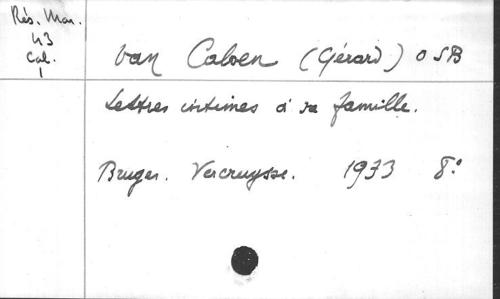 Rés. Mar.
43
Cal.
1
van Caloen (Gérard) OSB
Lettres intimes à sa famille.
Bruges. Vercruysse. 1933 8°